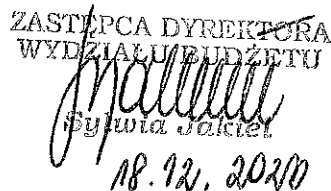 ZASTĘPCA DYREKTORA
WYDZIAŁU BUDŻETU
Sylwia Jakiel
18.12.2020